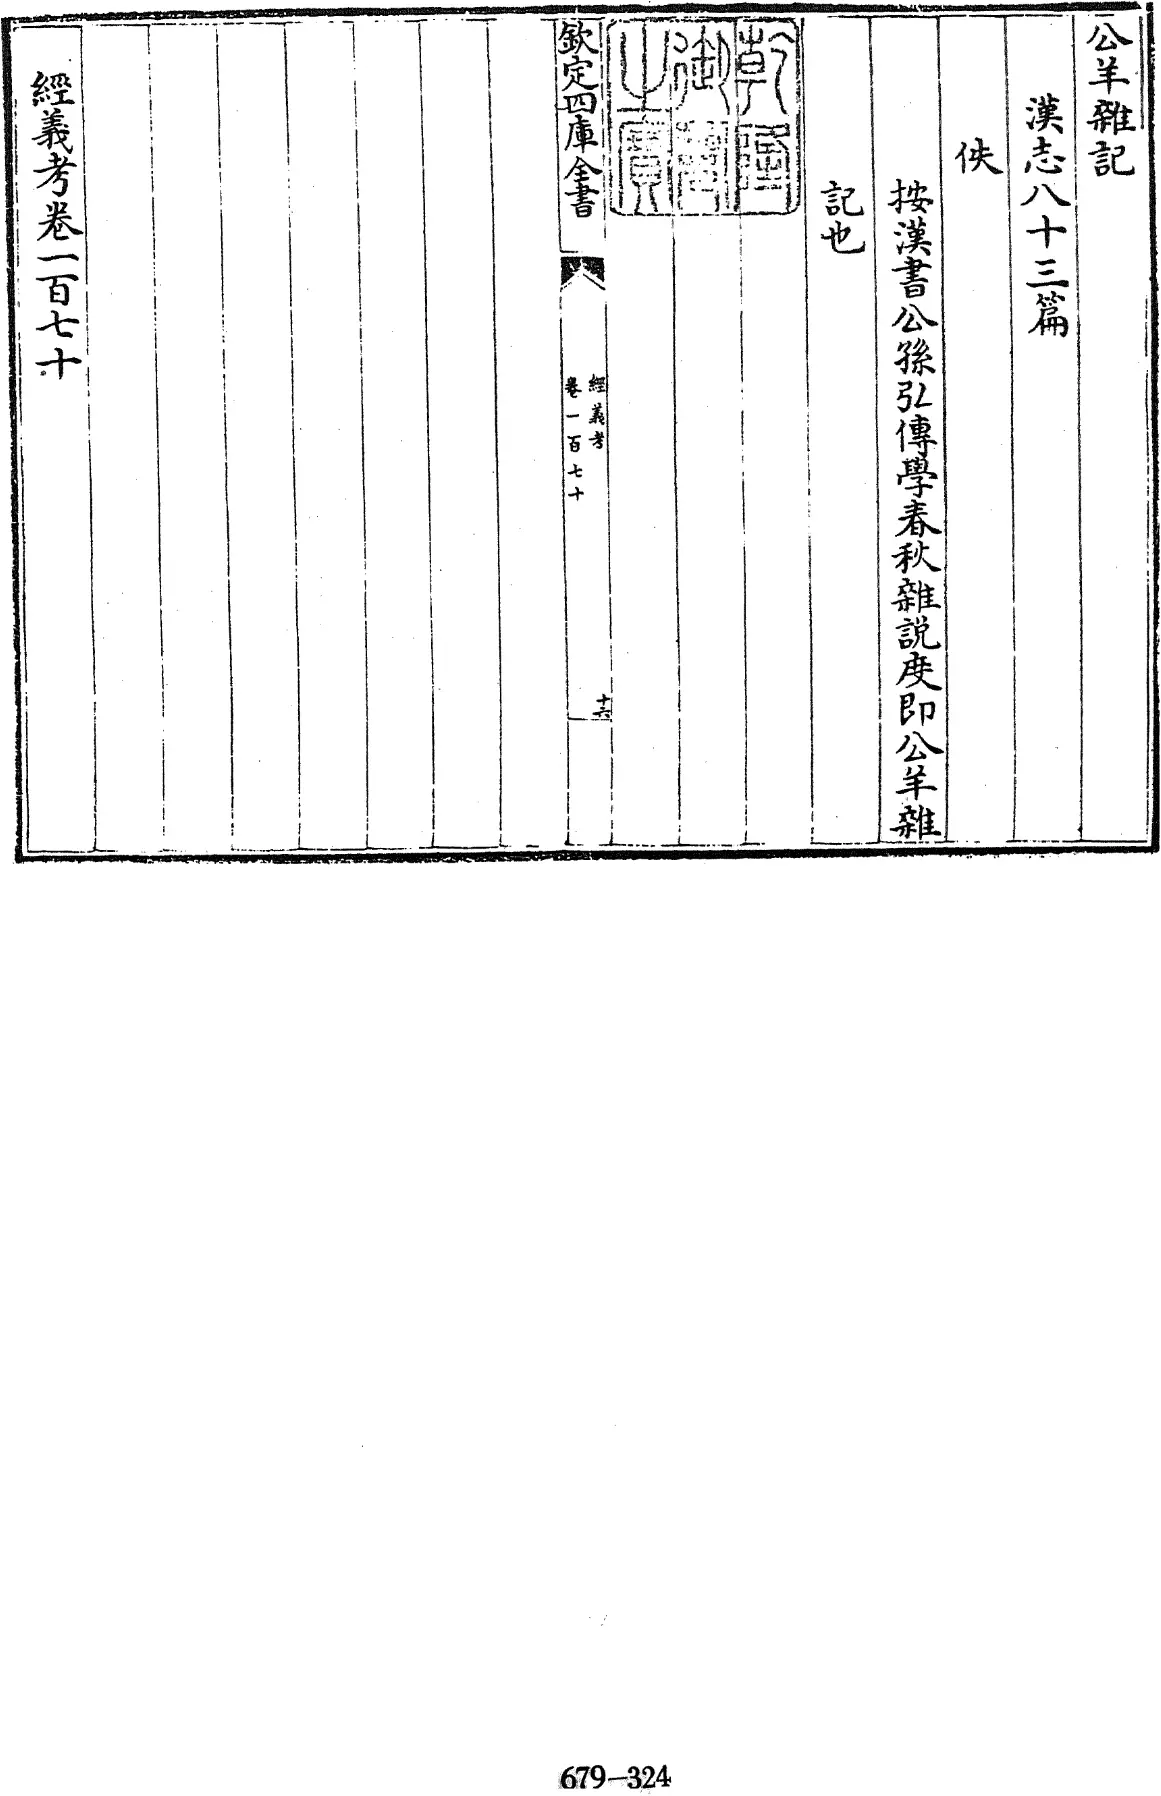 公羊雜記
漢志八十三篇
佚
按漢書公孫弘傳學春秋雜説度即公羊雜
記也
乾隆
御覽
之寶
欽定四庫全書
經義考
卷一百七十
十六
經義考卷一百七十
679-324